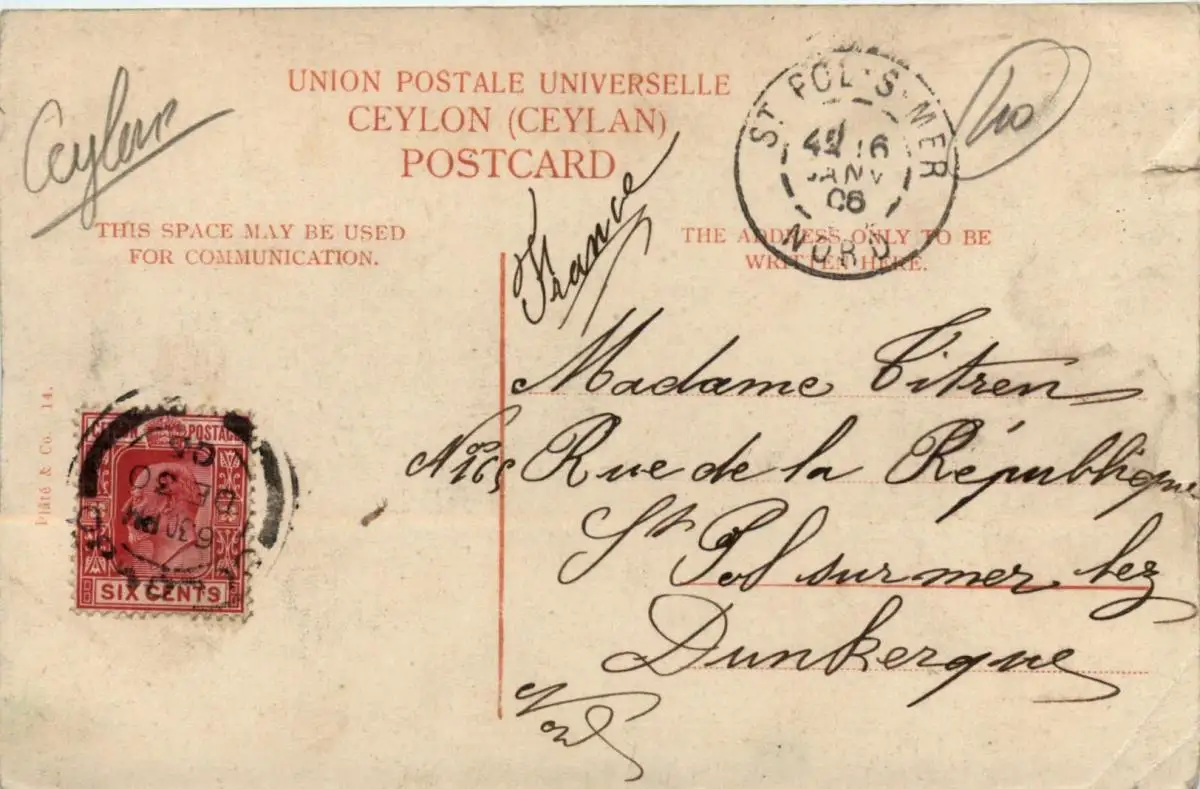 Ceylon
UNION POSTALE UNIVERSELLE
CEYLON (CEYLAN)
POSTCARD
ST POL S MER
16
JANV
06
NORD
THIS SPACE MAY BE USED
FOR COMMUNICATION.
France
THE ADDRESS ONLY TO BE
WRITTEN HERE.
Madame Titren
No 165 Rue de la République
St Pol sur mer lez
Dunkerque
Nord
Plâté & Co. 14.
CEYLON POSTAGE
SIX CENTS
6.30 PM
DE 30
05